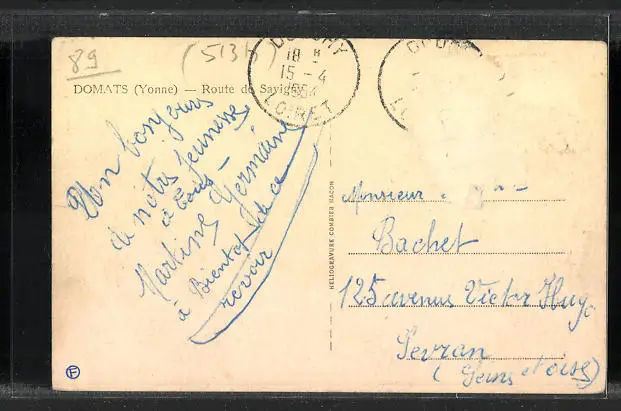 89
(513h)
DOMATS (Yonne) — Route de Savigny
18 H
15 - 4
LOIRET
Un bonjour
de notre jeunesse
à tous -
Martine Germaine
à Bientot de ce
revoir
HELIOGRAVURE COMBIER MACON
Monsieur
Bachet
125 avenue Victor Hugo
Sevran
(Seine et oise)
F